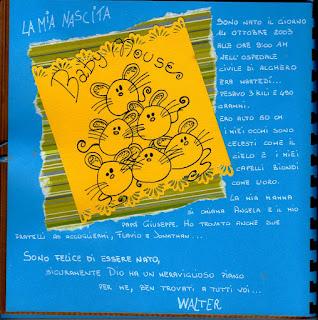 LA MIA NASCITA
Baby Mouse
SONO NATO IL GIORNO
14 OTTOBRE 2003
ALLE ORE 9:00 AM
NELL'OSPEDALE
CIVILE DI ALGHERO
ERA MARTEDÍ...
PESAVO 3 KILI E 490
GRAMMI.
ERO ALTO 50 CM
I MIEI OCCHI SONO
CELESTI COME IL
CIELO E I MIEI
CAPELLI BIONDI
COME L'ORO.
LA MIA MAMMA
SI CHIAMA ANGELA E IL MIO
PAPÁ GIUSEPPE. HO TROVATO ANCHE DUE
FRATELLI AD ACCOGLIERMI, FLAVIO E JONATHAN...
SONO FELICE DI ESSERE NATO,
SICURAMENTE DIO HA UN MERAVIGLIOSO PIANO
PER ME, BEN TROVATI A TUTTI VOI...
WALTER